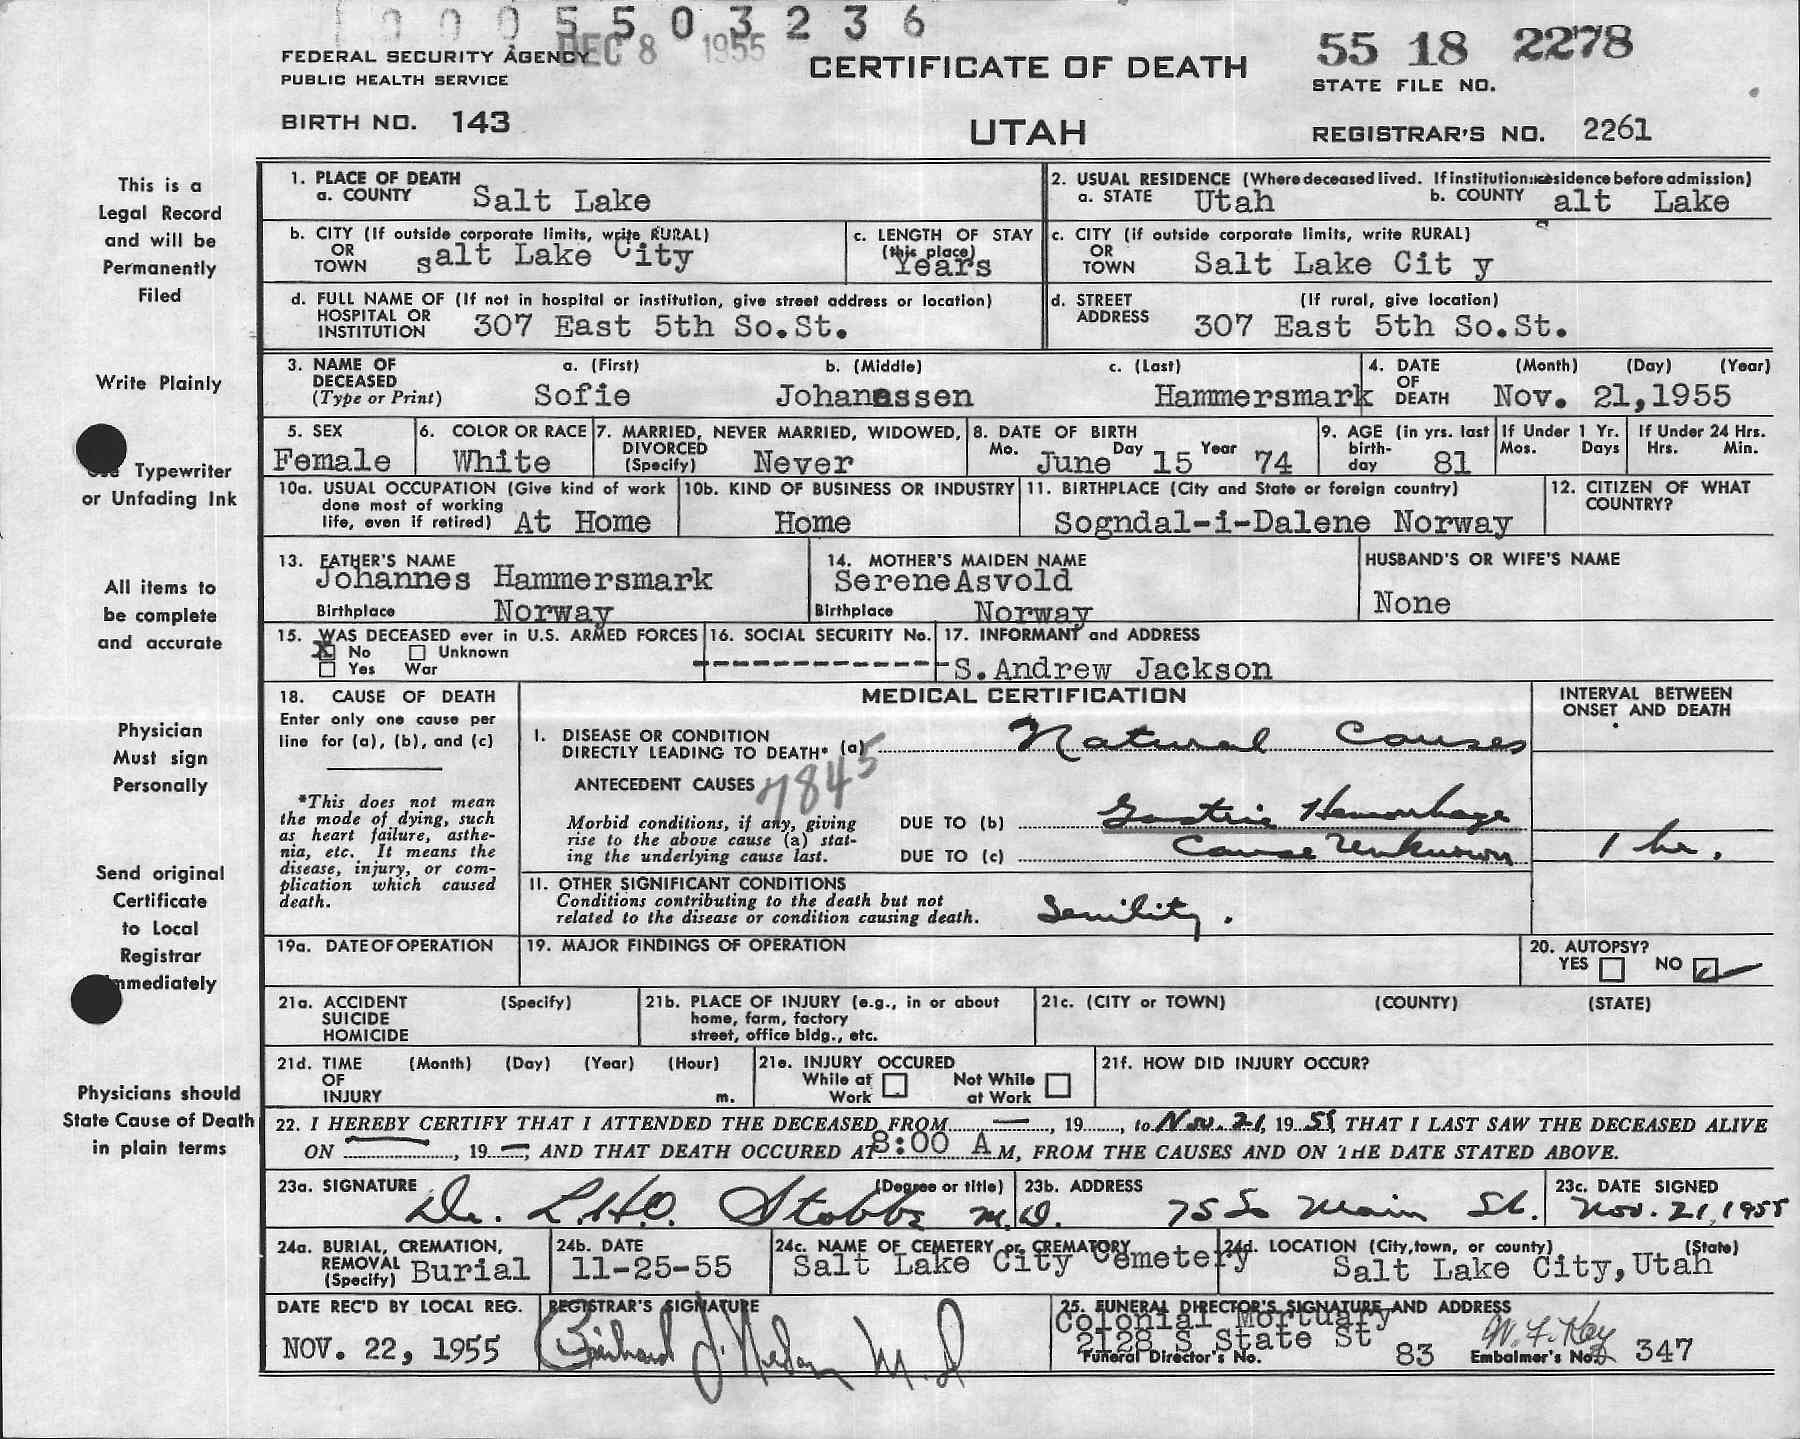 0 0 0 5 5 0 3 2 3 6
DEC 8 1955
FEDERAL SECURITY AGENCY
PUBLIC HEALTH SERVICE
CERTIFICATE OF DEATH
55 18 2278
STATE FILE NO.
BIRTH NO. 143
UTAH
REGISTRAR'S NO. 2261
This is a
Legal Record
and will be
Permanently
Filed
Write Plainly
Typewriter
or Unfading Ink
All items to
be complete
and accurate
Physician
Must sign
Personally
Send original
Certificate
to Local
Registrar
mmediately
Physicians should
State Cause of Death
in plain terms
1. PLACE OF DEATH
a. COUNTY Salt Lake
2. USUAL RESIDENCE (Where deceased lived. If institution: residence before admission)
a. STATE Utah b. COUNTY Salt Lake
b. CITY (If outside corporate limits, write RURAL)
OR
TOWN Salt Lake City
c. LENGTH OF STAY
(this place)
Years
c. CITY (If outside corporate limits, write RURAL)
OR
TOWN Salt Lake Cit y
d. FULL NAME OF (If not in hospital or institution, give street address or location)
HOSPITAL OR
INSTITUTION 307 East 5th So.St.
d. STREET (If rural, give location)
ADDRESS 307 East 5th So.St.
3. NAME OF a. (First) b. (Middle) c. (Last)
DECEASED
(Type or Print) Sofie Johanessen Hammersmark
4. DATE (Month) (Day) (Year)
OF
DEATH Nov. 21,1955
5. SEX
Female
6. COLOR OR RACE
White
7. MARRIED, NEVER MARRIED, WIDOWED,
DIVORCED
(Specify) Never
8. DATE OF BIRTH
Mo. June Day 15 Year 74
9. AGE (in yrs. last
birth-
day 81
If Under 1 Yr.
Mos. Days
If Under 24 Hrs.
Hrs. Min.
10a. USUAL OCCUPATION (Give kind of work
done most of working
life, even if retired) At Home
10b. KIND OF BUSINESS OR INDUSTRY
Home
11. BIRTHPLACE (City and State or foreign country)
Sogndal-i-Dalene Norway
12. CITIZEN OF WHAT
COUNTRY?
13. FATHER'S NAME
Johannes Hammersmark
Birthplace Norway
14. MOTHER'S MAIDEN NAME
Serene Asvold
Birthplace Norway
HUSBAND'S OR WIFE'S NAME
None
15. WAS DECEASED ever in U.S. ARMED FORCES
X No Unknown
Yes War
16. SOCIAL SECURITY No.
--------------
17. INFORMANT and ADDRESS
S. Andrew Jackson
18. CAUSE OF DEATH
Enter only one cause per
line for (a), (b), and (c)
*This does not mean
the mode of dying, such
as heart failure, asthe-
nia, etc. It means the
disease, injury, or com-
plication which caused
death.
MEDICAL CERTIFICATION
INTERVAL BETWEEN
ONSET AND DEATH
I. DISEASE OR CONDITION
DIRECTLY LEADING TO DEATH* (a) Natural Causes
ANTECEDENT CAUSES 7845
Morbid conditions, if any, giving
rise to the above cause (a) stat-
ing the underlying cause last.
DUE TO (b) Gastric Hemorrhage
DUE TO (c) Cause Unknown
1 hr.
II. OTHER SIGNIFICANT CONDITIONS
Conditions contributing to the death but not
related to the disease or condition causing death.
Senility.
19a. DATE OF OPERATION
19. MAJOR FINDINGS OF OPERATION
20. AUTOPSY?
YES NO
21a. ACCIDENT (Specify)
SUICIDE
HOMICIDE
21b. PLACE OF INJURY (e.g., in or about
home, farm, factory
street, office bldg., etc.
21c. (CITY or TOWN) (COUNTY) (STATE)
21d. TIME (Month) (Day) (Year) (Hour)
OF
INJURY m.
21e. INJURY OCCURED
While at
Work
Not While
at Work
21f. HOW DID INJURY OCCUR?
22. I HEREBY CERTIFY THAT I ATTENDED THE DECEASED FROM — , 19 , to Nov. 21, 1955, THAT I LAST SAW THE DECEASED ALIVE
ON — , 19 — , AND THAT DEATH OCCURED AT 8:00 A M, FROM THE CAUSES AND ON THE DATE STATED ABOVE.
23a. SIGNATURE (Degree or title)
Dr. L.H.O. Stobbe M.D.
23b. ADDRESS
75 So Main St.
23c. DATE SIGNED
Nov. 21, 1955
24a. BURIAL, CREMATION,
REMOVAL
(Specify) Burial
24b. DATE
11-25-55
24c. NAME OF CEMETERY or CREMATORY
Salt Lake City Cemetery
24d. LOCATION (City, town, or county) (State)
Salt Lake City, Utah
DATE REC'D BY LOCAL REG.
NOV. 22, 1955
REGISTRAR'S SIGNATURE
M.D
25. FUNERAL DIRECTOR'S SIGNATURE AND ADDRESS
Colonial Mortuary
2128 S State St
Funeral Director's No. 83
W. F. Kay
Embalmer's No. 347